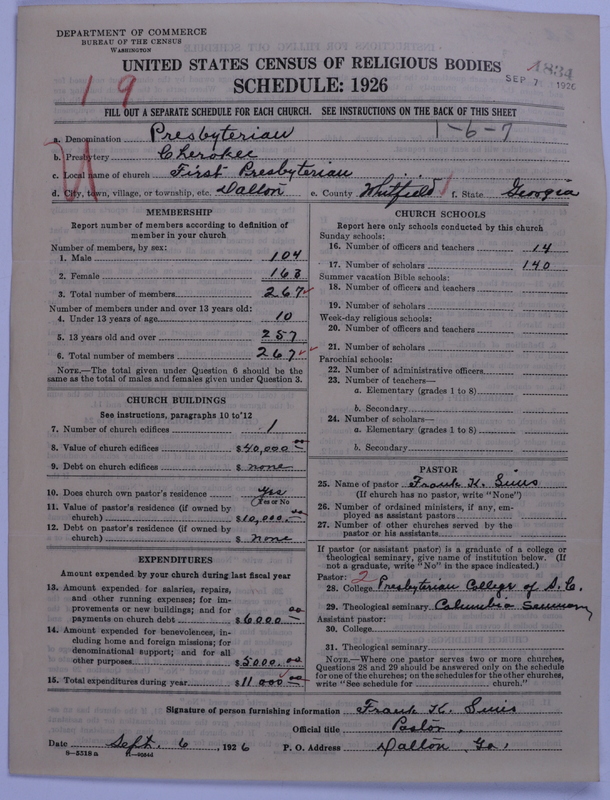 DEPARTMENT OF COMMERCE
BUREAU OF THE CENSUS
WASHINGTON
UNITED STATES CENSUS OF RELIGIOUS BODIES
SCHEDULE: 1926
1834
SEP 7 1926
19
FILL OUT A SEPARATE SCHEDULE FOR EACH CHURCH. SEE INSTRUCTIONS ON THE BACK OF THIS SHEET
1-6-7
a. Denomination Presbyterian
b. Presbytery Cherokee
c. Local name of church First Presbyterian
d. City, town, village, or township, etc. Dalton e. County Whitfield f. State Georgia
MEMBERSHIP
Report number of members according to definition of member in your church
Number of members, by sex:
1. Male 104
2. Female 163
3. Total number of members 267
Number of members under and over 13 years old:
4. Under 13 years of age 10
5. 13 years old and over 257
6. Total number of members 267
NOTE.—The total given under Question 6 should be same as the total of males and females given under Question 3.
CHURCH BUILDINGS
See instructions, paragraphs 10 to 12
7. Number of church edifices 1
8. Value of church edifices $40,000 00
9. Debt on church edifices $ none
10. Does church own pastor's residence Yes
(Yes or No)
11. Value of pastor's residence (if owned by church) $10,000.00
12. Debt on pastor's residence (if owned by church) $ none
EXPENDITURES
Amount expended by your church during last fiscal year
13. Amount expended for salaries, repairs, and other running expenses; for improvements or new buildings; and for payments on church debt $6000 00
14. Amount expended for benevolences, including home and foreign missions; for denominational support; and for all other purposes $5000.00
15. Total expenditures during year $11 000 00
CHURCH SCHOOLS
Report here only schools conducted by this church
Sunday schools:
16. Number of officers and teachers 14
17. Number of scholars 140
Summer vacation Bible schools:
18. Number of officers and teachers
19. Number of scholars
Week-day religious schools:
20. Number of officers and teachers
21. Number of scholars
Parochial schools:
22. Number of administrative officers
23. Number of teachers—
a. Elementary (grades 1 to 8)
b. Secondary
24. Number of scholars—
a. Elementary (grades 1 to 8)
b. Secondary
PASTOR
25. Name of pastor Frank K. Sims
(If church has no pastor, write "None")
26. Number of ordained ministers, if any, employed as assistant pastors
27. Number of other churches served by the pastor or his assistants
If pastor (or assistant pastor) is a graduate of a college or theological seminary, give name of institution below. (If not a graduate, write "No" in the space indicated.)
Pastor: 2
28. College Presbyterian College of S. C.
29. Theological seminary Columbia Seminary
Assistant pastor:
30. College
31. Theological seminary
NOTE.—Where one pastor serves two or more churches, Questions 28 and 29 should be answered only on the schedule for one of the churches; on the schedules for the other churches, write "See schedule for church."
Signature of person furnishing information Frank K. Sims
Official title Pastor,
Date Sept. 6, 1926 P. O. Address Dalton, Ga,
8-5318a